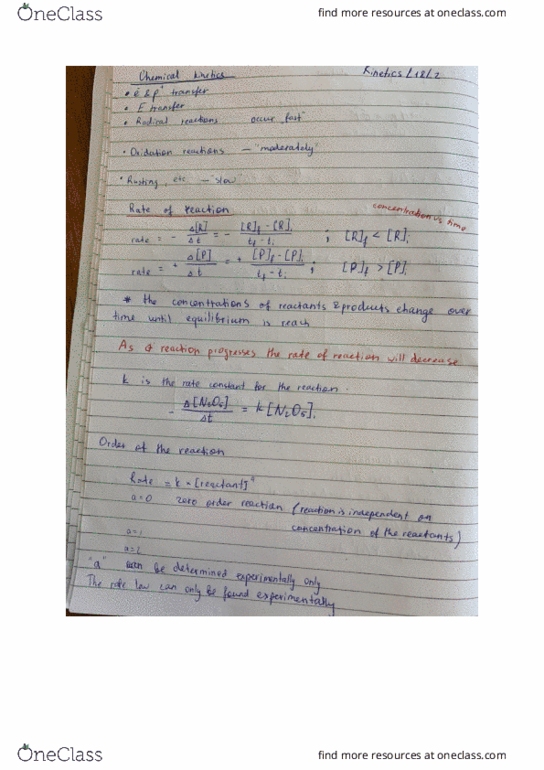 OneClass
find more resources at oneclass.com
Chemical kinetics
Kinetics /18/2
• e⁻ & p⁺ transfer
• E transfer
• Radical reactions occur "fast"
• Oxidation reactions – "moderately"
• Rusting, etc – "slow"
Rate of reaction
concentration vs time
rate = - Δ[R]/Δt = - [R]f - [R]i / tf - ti ; [R]f < [R]i
rate = + Δ[P]/Δt = + [P]f - [P]i / tf - ti ; [P]f > [P]i
* the concentrations of reactants & products change over
time until equilibrium is reach
As reaction progresses the rate of reaction will decrease
k is the rate constant for the reaction.
- Δ[N₂O₅]/Δt = k[N₂O₅]i
Order of the reaction
Rate = k × [reactant]ᵃ
a=0 zero order reaction (reaction is independent on
concentration of the reactants)
a=1
a=2
"a" can be determined experimentally only
The rate law can only be found experimentally
OneClass
find more resources at oneclass.com